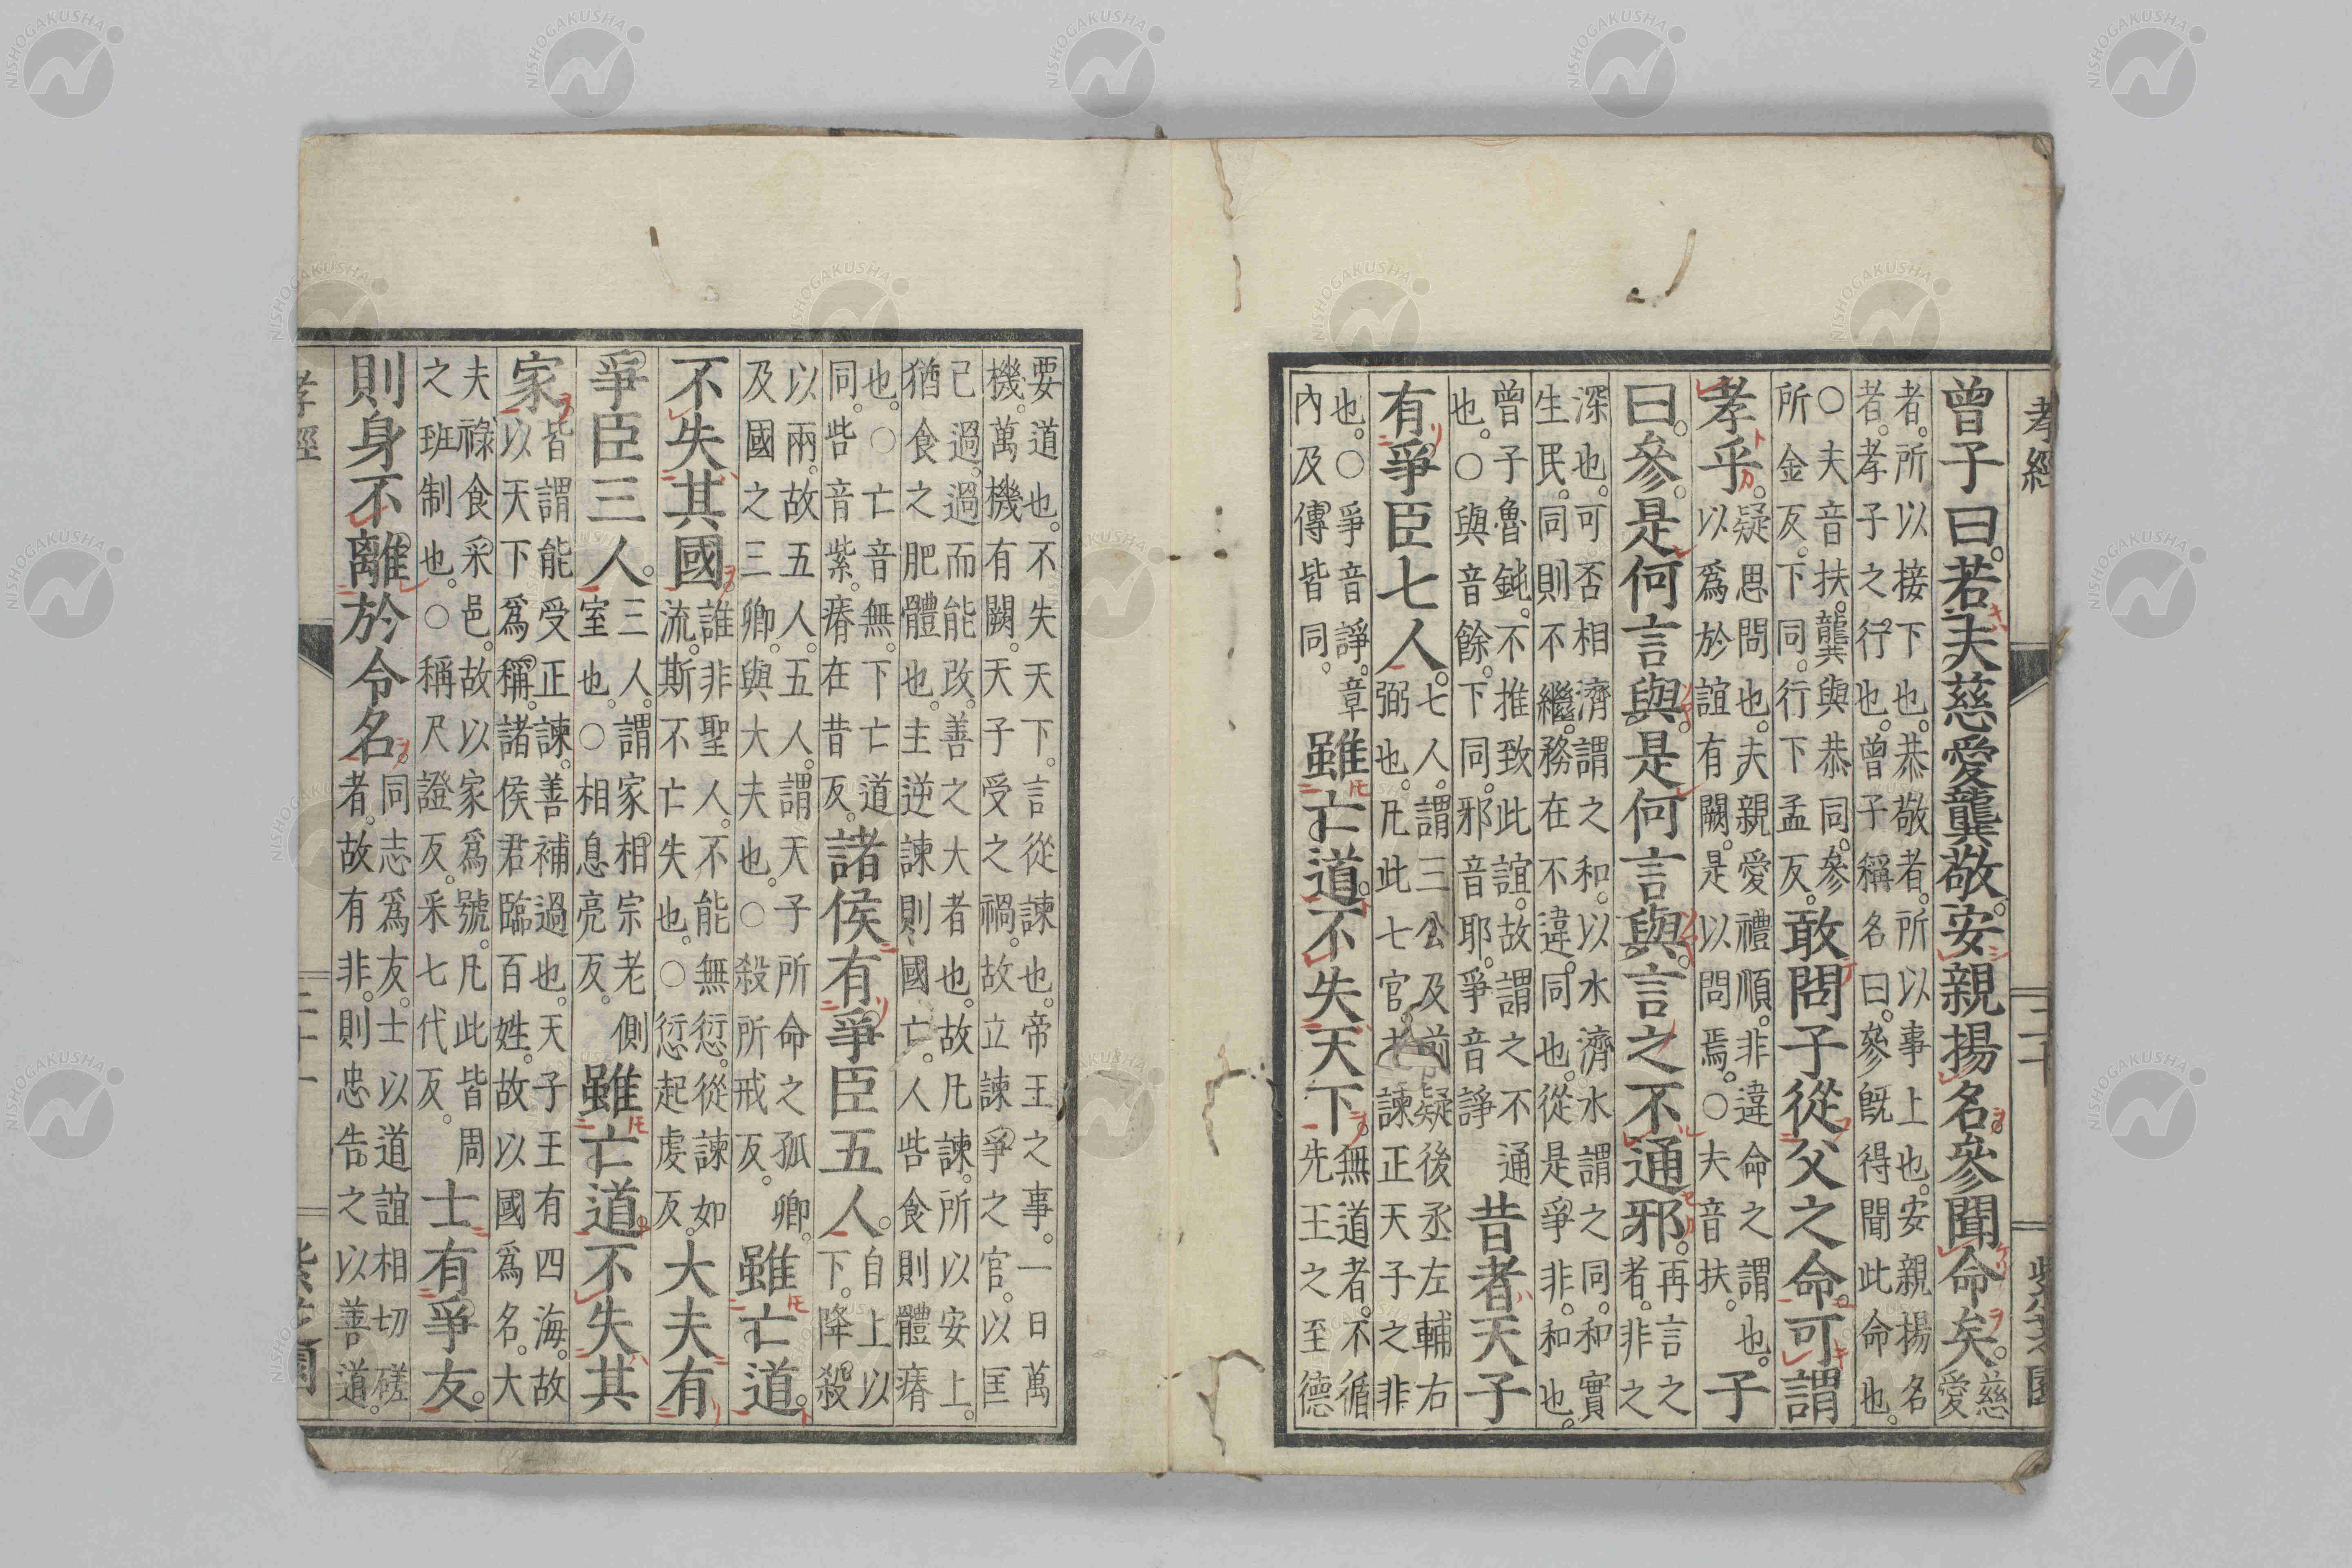 孝經
三十
紫芝園
曾子曰。若夫慈愛龔敬。安親揚名。參聞命矣。慈
愛
者。所以接下也。恭敬者。所以事上也。安親揚名
者。孝子之行也。曾子稱名曰。參旣得聞此命也。
○夫音扶。龔與恭同。參
所金反。下同。行下孟反。敢問子從父之命。可謂
孝乎。疑思問也。夫親愛禮順。非違命之謂也。
以爲於誼有闕。是以問焉。○夫音扶。子
曰。參。是何言與。是何言與。言之不通邪。再言之
者。非之
深也。可否相濟謂之和。以水濟水謂之同。和實
生民。同則不繼。務在不違。同也。從是爭非。和也。
曾子魯鈍。不推致此誼。故謂之不通
也。○與音餘。下同。邪音耶。爭音諍昔者天子
有爭臣七人。七人。謂三公及前疑後丞左輔右
弼也。凡此七官。主諫正天子之非
也。○爭音諍。章
內及傳皆同。雖亡道。不失天下。無道者。不循
先王之至德
要道也。不失天下。言從諫也。帝王之事。一日萬
機。萬機有闕。天子受之禍。故立諫爭之官。以匡
己過。過而能改。善之大者也。故凡諫。所以安上。
猶食之肥體也。主逆諫則國亡。人呰食則體瘠
也。○亡音無。下亡道
同。呰音紫。瘠在昔反。諸侯有爭臣五人。自上以
下。降殺
以兩。故五人。五人。謂天子所命之孤卿。
及國之三卿。與大夫也。○殺所戒反。雖亡道。
不失其國。誰非聖人。不能無愆。從諫如
流。斯不亡失也。○愆起虔反。大夫有
爭臣三人。三人。謂家相宗老側
室也。○相息亮反。雖亡道。不失其
家。皆謂能受正諫。善補過也。天子王有四海。故
以天下爲稱。諸侯君臨百姓。故以國爲名。大
夫祿食采邑。故以家爲號。凡此皆周
之班制也。○稱尺證反。采七代反。士有爭友。
則身不離於令名。同志爲友。士以道誼相切磋
者。故有非。則忠告之以善道。
孝經
三十一
紫芝園